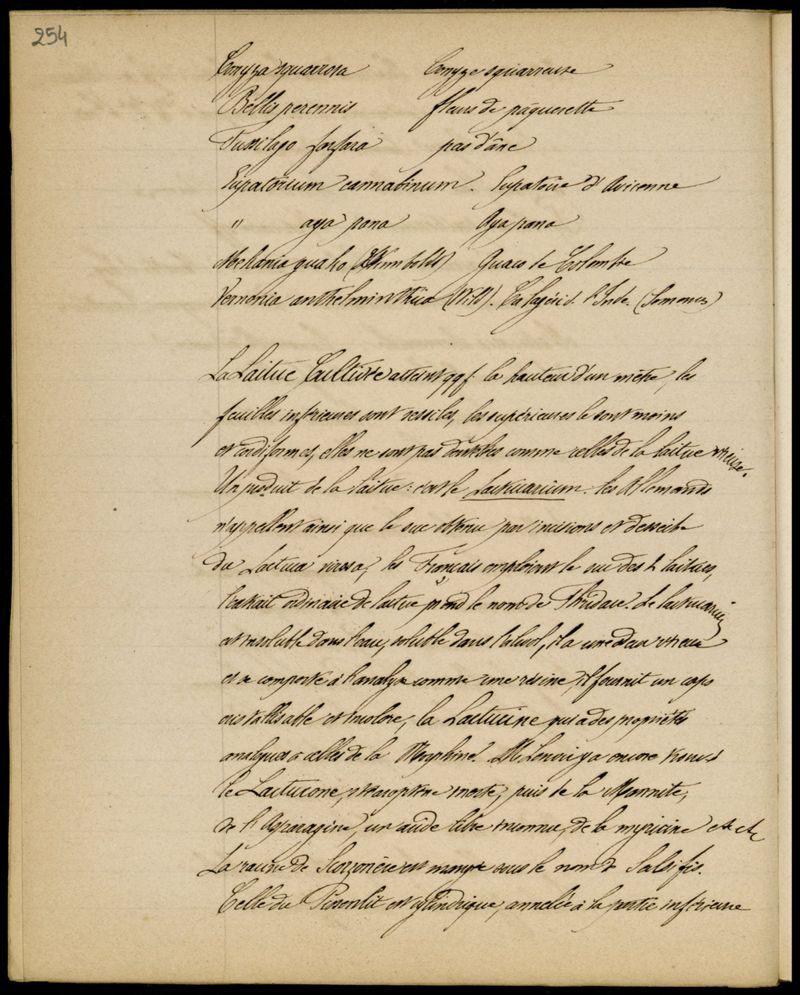 254
Conyza squarrosa Conyze squarreuse
Bellis perennis fleurs de pâquerette
Tussilago farfara pas d'âne
Eupatorium cannabinum. Eupatoire d'Avicenne
" aya pana Aya pana
guako (Humboldt) Guaco de Colombie
Vernonia anthelmintica (Willd). d. l'Inde. (Semences)
La Laitue Cultivée atteint qqf. la hauteur d'un mètre, les
feuilles inférieures sont sessiles, les supérieures le sont moins
et cordiformes, elles ne sont pas dentelées comme celles de la laitue vireuse.
Un produit de la laitue: c'est le Lactucarium. les Allemands
n'appellent ainsi que le suc obtenu par incisions et desséché
du Lactuca virosa, les Français emploient le suc des 2 laitues,
l'extrait ordinaire de laitue prend le nom de Thridace. Le lactucarium
est insoluble dans l'eau, soluble dans l'alcool, il a une odeur vireuse
et se comporte à l'analyse comme une résine, il fournit un corps
cristallisable et incolore, la Lactucine qui a des propriétés
analogues à celles de la Morphine. M. Lenoir y a encore trouvé
la Lactucone, puis de la Mannite,
de l'Asparagine, un acide libre, de la myricine etc etc
La racine de Scorzonère est mangée sous le nom de Salsifis.
Celle du Pissenlit est cylindrique, annelée à la partie inférieure